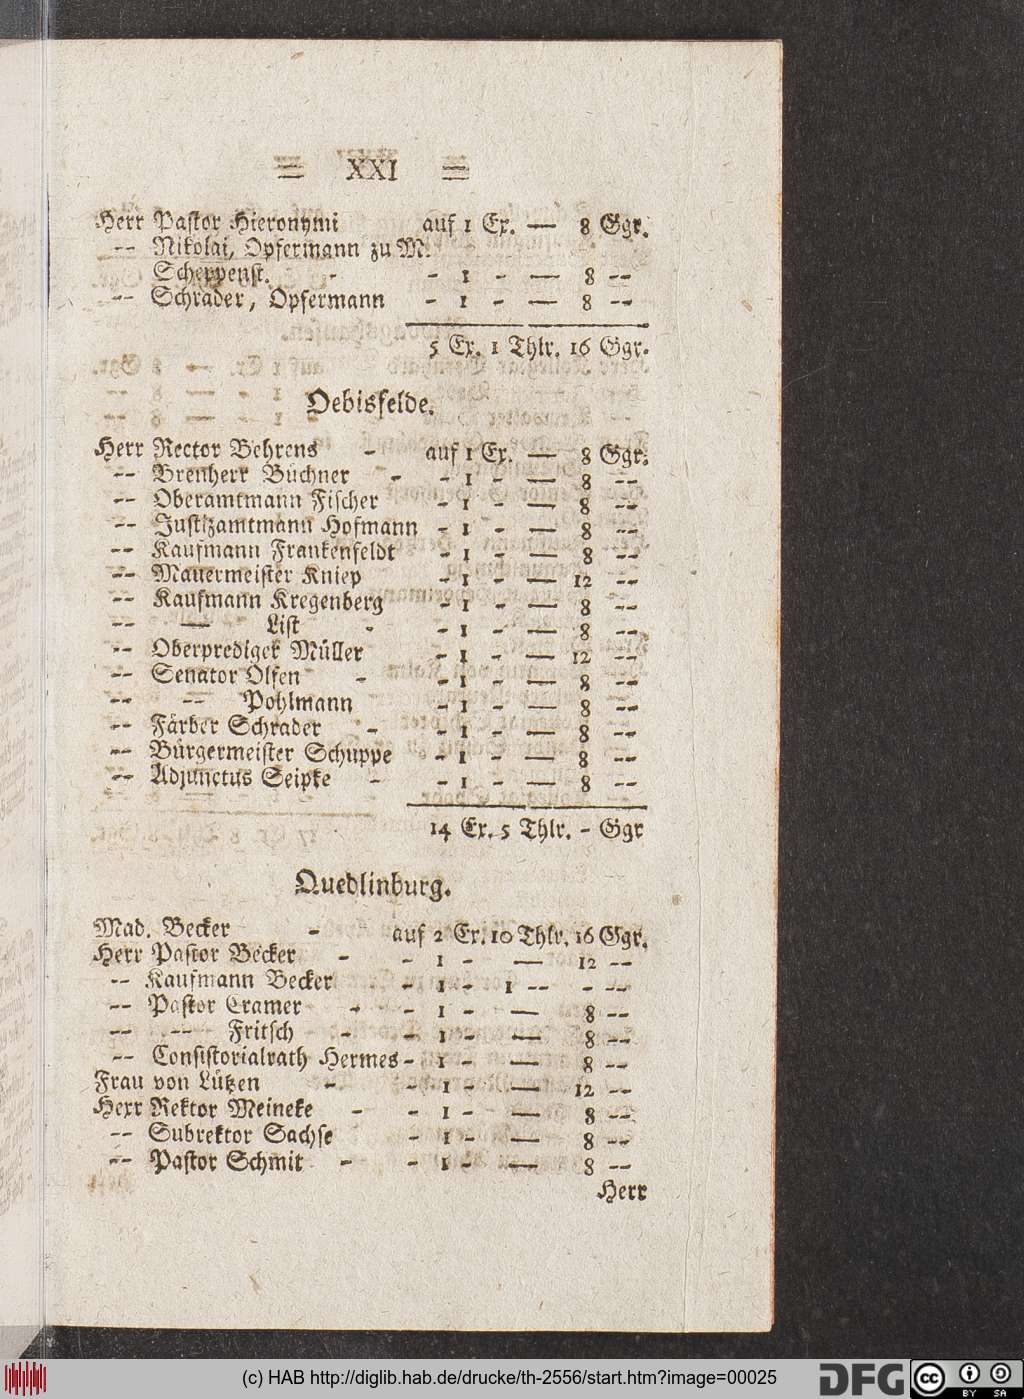 = XXI =
Herr Pastor Hieronymi auf 1 Ex. — 8 Ggr.
-- Nikolai, Opfermann zu M.
Scheppenst. - - 1 - — 8 --
-- Schrader, Opfermann - 1 - — 8 --
5 Ex. 1 Thlr. 16 Ggr.
Oebisfelde.
Herr Rector Behrens - auf 1 Ex. — 8 Ggr.
-- Brenherr Büchner - - 1 - — 8 --
-- Oberamtmann Fischer - 1 - — 8 --
-- Justizamtmann Hofmann - 1 - — 8 --
-- Kaufmann Frankenfeldt - 1 - — 8 --
-- Mauermeister Kniep - 1 - — 12 --
-- Kaufmann Kregenberg - 1 - — 8 --
-- — List - - 1 - — 8 --
-- Oberprediger Müller - 1 - — 12 --
-- Senator Olsen - - 1 - — 8 --
-- -- Pohlmann - 1 - — 8 --
-- Färber Schrader - - 1 - — 8 --
-- Bürgermeister Schuppe - 1 - — 8 --
-- Adjunctus Seipke - - 1 - — 8 --
14 Ex. 5 Thlr. - Ggr
Quedlinburg.
Mad. Becker - auf 2 Ex. 10 Thlr. 16 Ggr.
Herr Pastor Becker - - 1 - — 12 --
-- Kaufmann Becker - 1 - 1 -- - --
-- Pastor Cramer - - 1 - — 8 --
-- -- Fritsch - - 1 - — 8 --
-- Consistorialrath Hermes - 1 - — 8 --
Frau von Lützen - - 1 - — 12 --
Herr Rektor Meineke - - 1 - — 8 --
-- Subrektor Sachse - 1 - — 8 --
-- Pastor Schmit - - 1 - — 8 --
Herr
(c) HAB http://diglib.hab.de/drucke/th-2556/start.htm?image=00025
DFG
cc BY SA